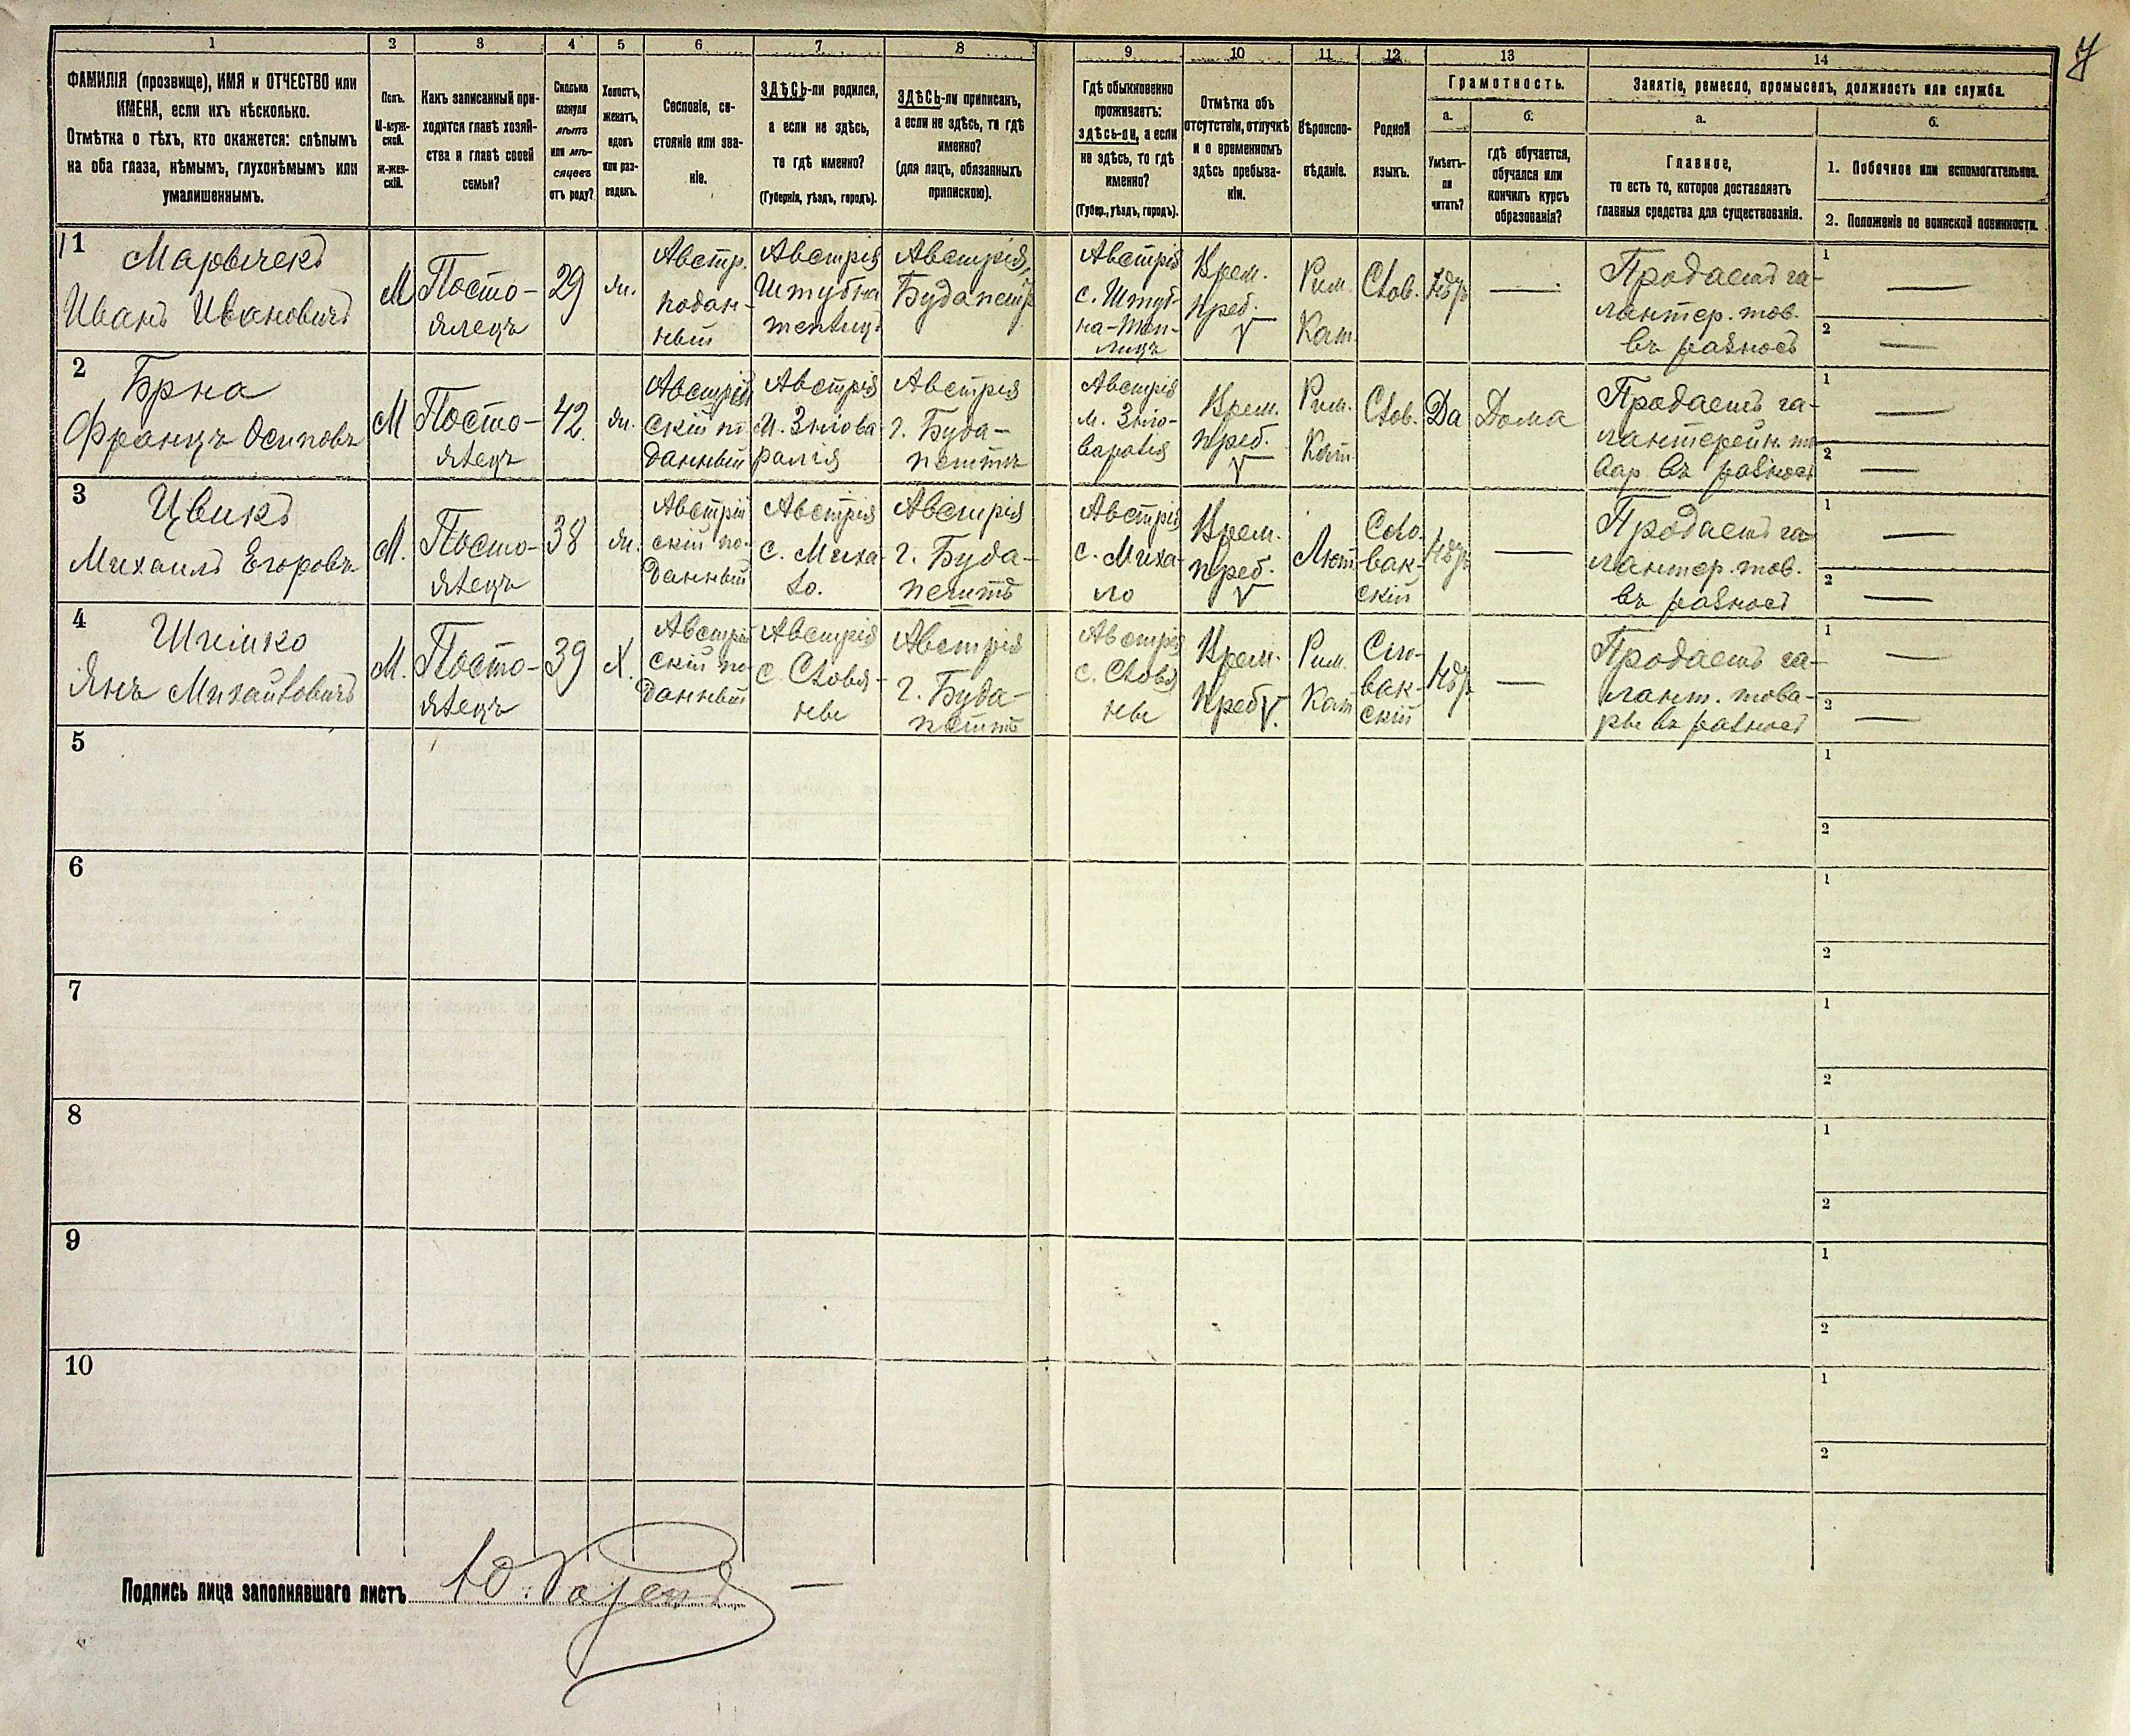 1 2 3 4 5 6 7 8 9 10 11 12 13 14
ФАМИЛІЯ (прозвище), ИМЯ и ОТЧЕСТВО или
ИМЕНА, если ихъ нѣсколько.
Отмѣтка о тѣхъ, кто окажется: слѣпымъ
на оба глаза, нѣмымъ, глухонѣмымъ или
умалишеннымъ.
Полъ.
М-муж-
ской.
Ж-жен-
скій.
Какъ записанный при-
ходится главѣ хозяй-
ства и главѣ своей
семьи?
Сколько
минуло
лѣтъ
или мѣ-
сяцевъ
отъ роду?
Холостъ,
женатъ,
вдовъ
или раз-
веденъ.
Сословіе, со-
стояніе или зва-
ніе.
ЗДѢСЬ-ли родился,
а если не здѣсь,
то гдѣ именно?
(Губернія, уѣздъ, городъ).
ЗДѢСЬ-ли приписанъ,
а если не здѣсь, то гдѣ
именно?
(для лицъ, обязанныхъ
припискою).
Гдѣ обыкновенно
проживаетъ:
здѣсь-ли, а если
не здѣсь, то гдѣ
именно?
(Губер., уѣздъ, городъ).
Отмѣтка объ
отсутствіи, отлучкѣ
и о временномъ
здѣсь пребыва-
ніи.
Вѣроиспо-
вѣданіе.
Родной
языкъ.
Грамотность.
а.
Умѣетъ-
ли
читать?
б.
гдѣ обучается,
обучался или
кончилъ курсъ
образованія?
Занятіе, ремесло, промыселъ, должность или служба.
а.
Главное,
то есть то, которое доставляетъ
главныя средства для существованія.
б.
1. Побочное или вспомогательное.
2. Положеніе по воинской повинности.
1
Иванъ Ивановичъ
М
Посто-
ялецъ
29
жн.
Австр.
подан-
ный
Австрія
Австрія,
Австрія
Врем.
преб.
Рим.
Кат.
Слов.
Нѣтъ
Продаетъ га-
лантер. тов.
въ разносъ
1
2
2
Брна
Францъ Осиповъ
М
Посто-
ялецъ
42.
жн.
Австрій
скій по
данный
Австрія
Австрія
г. Буда-
пештъ
Австрія
Врем.
преб.
Рим.
Кат.
Слов.
Да
Дома
Продаетъ га-
лантерейн. то
вар. въ разносъ
1
2
3
Цвикъ
Михаилъ Егоровъ
М.
Посто-
ялецъ
38
жн.
Австрій
скій по-
данный
Австрія
с. Миха-
ло.
Австрія
г. Буда-
пештъ
Австрія
с. Миха-
ло
Врем.
преб.
Лют.
Сло-
вак-
скій
Нѣтъ
Продаетъ га-
лантер. тов.
въ разносъ
1
2
4
Янъ Михайловичъ
М.
Посто-
ялецъ
39
Х.
Австрій
скій по-
данный
Австрія
Австрія
г. Буда-
пештъ
Австрія
Врем.
преб.
Рим.
Кат.
Сло-
вак-
скій
Нѣтъ
Продаетъ га-
лант. това-
ры въ разносъ
1
2
5
1
2
6
1
2
7
1
2
8
1
2
9
1
2
10
1
2
Подпись лица заполнявшаго листъ